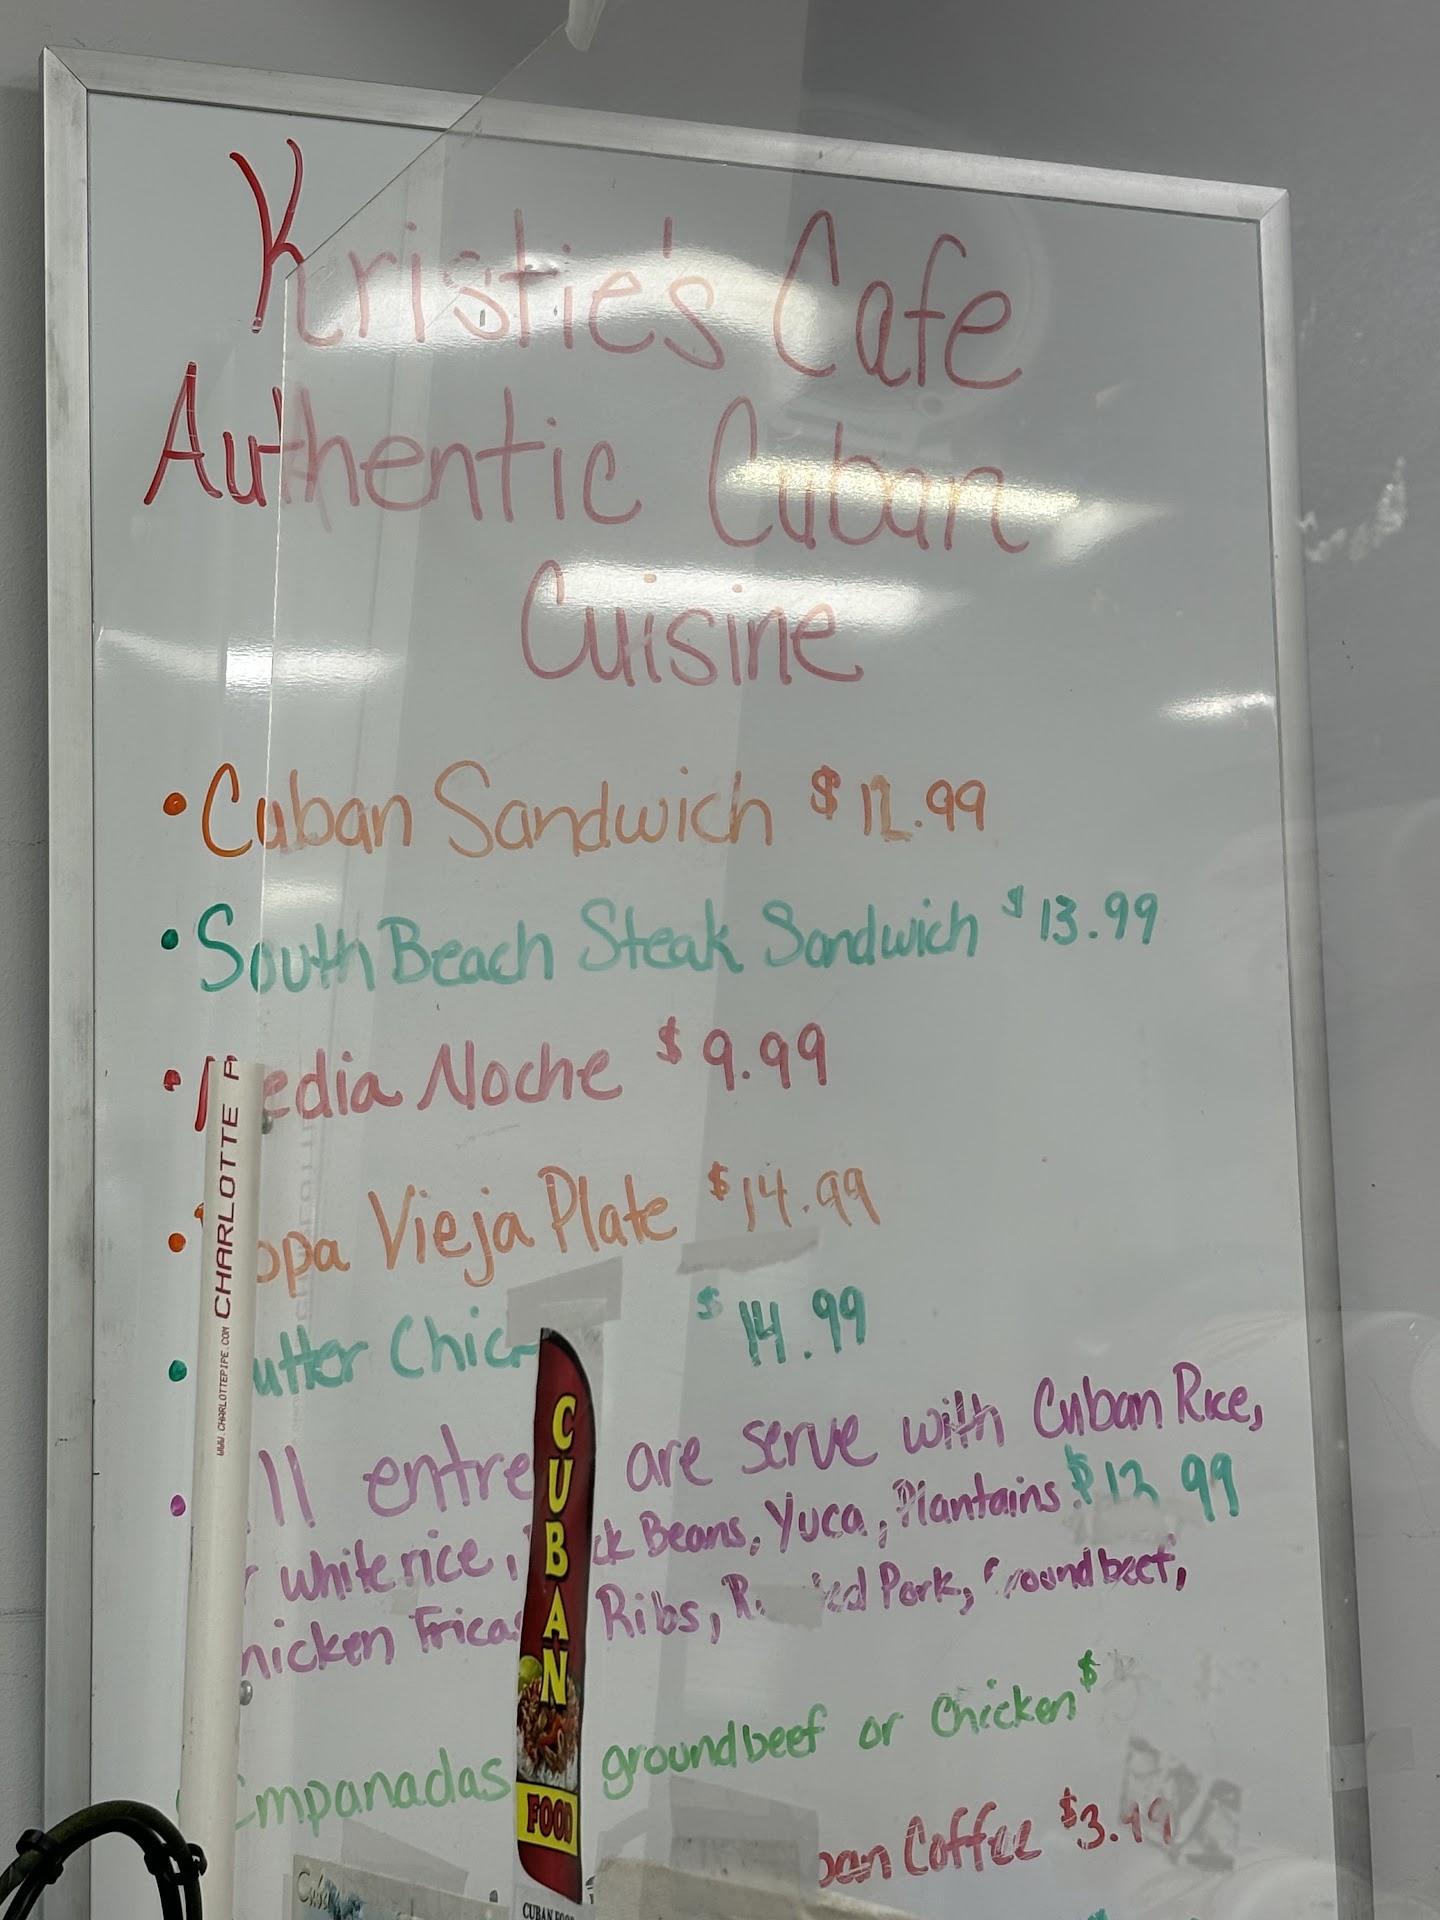 Kristie's Cafe
Authentic Cuban
Cuisine
• Cuban Sandwich $
.99
• South Beach Steak Sandwich $13.99
• Media Noche $9.99
• opa Vieja Plate $14.99
• utter Chic $14.99
• ll entre are serve with Cuban Rice,
r white rice, ck Beans, Yuca, Plantains $12 99
hicken Fricas Ribs, Pork, roundbeef,
Empanadas groundbeef or Chicken $
ban Coffee $3.49
WWW.CHARLOTTEPIPE.COM CHARLOTTE P
CUBAN
FOOD
Cuba
CUBAN FOO